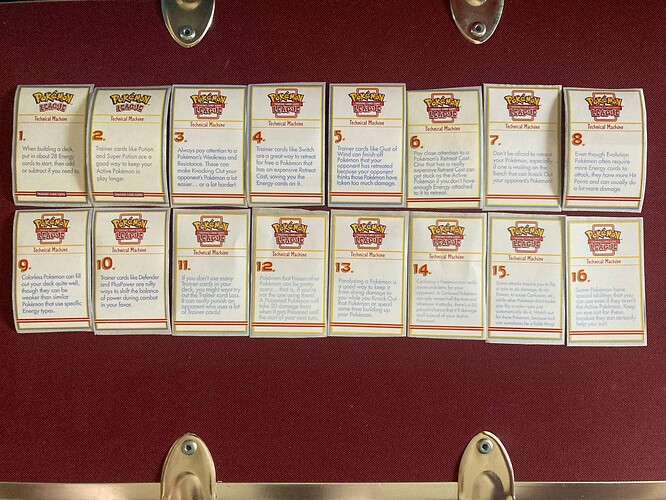 POKéMON
LEAGUE
Technical Machine
1.
When building a deck,
put in about 28 Energy
cards to start, then add
or subtract if you need to.
POKéMON
LEAGUE
Technical Machine
2.
Trainer cards like Potion
and Super Potion are a
good way to keep your
Active Pokémon in
play longer.
POKéMON
LEAGUE
Technical Machine
3.
Always pay attention to a
Pokémon's Weakness and
Resistance. These can
make Knocking Out your
opponent's Pokémon a lot
easier... or a lot harder!
POKéMON
LEAGUE
Technical Machine
4.
Trainer cards like Switch
are a great way to retreat
for free a Pokémon that
has an expensive Retreat
Cost, saving you the
Energy cards on it.
POKéMON
LEAGUE
Technical Machine
5.
Trainer cards like Gust of
Wind can finish off
Pokémon that your
opponent has retreated
because your opponent
thinks those Pokémon have
taken too much damage.
POKéMON
LEAGUE
Technical Machine
6.
Pay close attention to a
Pokémon's Retreat Cost.
One that has a really
expensive Retreat Cost can
get stuck as the Active
Pokémon if you don't have
enough Energy attached
to it to retreat.
POKéMON
LEAGUE
Technical Machine
7.
Don't be afraid to retreat
your Pokémon, especially
if one is waiting on the
Bench that can Knock Out
your opponent's Pokémon!
POKéMON
LEAGUE
Technical Machine
8.
Even though Evolution
Pokémon often require
more Energy cards to
attack, they have more Hit
Points and can usually do
a lot more damage.
POKéMON
LEAGUE
Technical Machine
9.
Colorless Pokémon can fill
out your deck quite well,
though they can be
weaker than similar
Pokémon that use specific
Energy types.
POKéMON
LEAGUE
Technical Machine
10.
Trainer cards like Defender
and PlusPower are nifty
ways to shift the balance
of power during combat
in your favor.
POKéMON
LEAGUE
Technical Machine
11.
If you don't use many
Trainer cards in your
deck, you might want to try
out the Trainer card Lass.
It can really punish an
opponent who uses a lot
of Trainer cards!
POKéMON
LEAGUE
Technical Machine
12.
Pokémon that Poison other
Pokémon can be pretty
scary... that is, if you're
not the one using them!
A Poisoned Pokémon will
take 20 damage from
when it gets Poisoned until
the start of your next turn.
POKéMON
LEAGUE
Technical Machine
13.
Paralyzing a Pokémon
is a good way to keep it
from doing damage to
you while you Knock Out
that Pokémon or spend
some time building up
your Pokémon.
POKéMON
LEAGUE
Technical Machine
14.
Confusing a Pokémon
can only retreat half the time and
whenever it attacks, there's a 50
percent chance that it'll damage
itself instead of your Active
Pokémon!
POKéMON
LEAGUE
Technical Machine
15.
Some attacks require you to flip
a coin to do damage, to do
while other Pokémon that
automatically do it. Watch out
for these Pokémon, because luck can
sometimes be a fickle thing!
POKéMON
LEAGUE
Technical Machine
16.
Some Pokémon have
special abilities that you
can use even if they aren't
the Active Pokémon. Keep
an eye out for these,
because they can certainly
help you out!